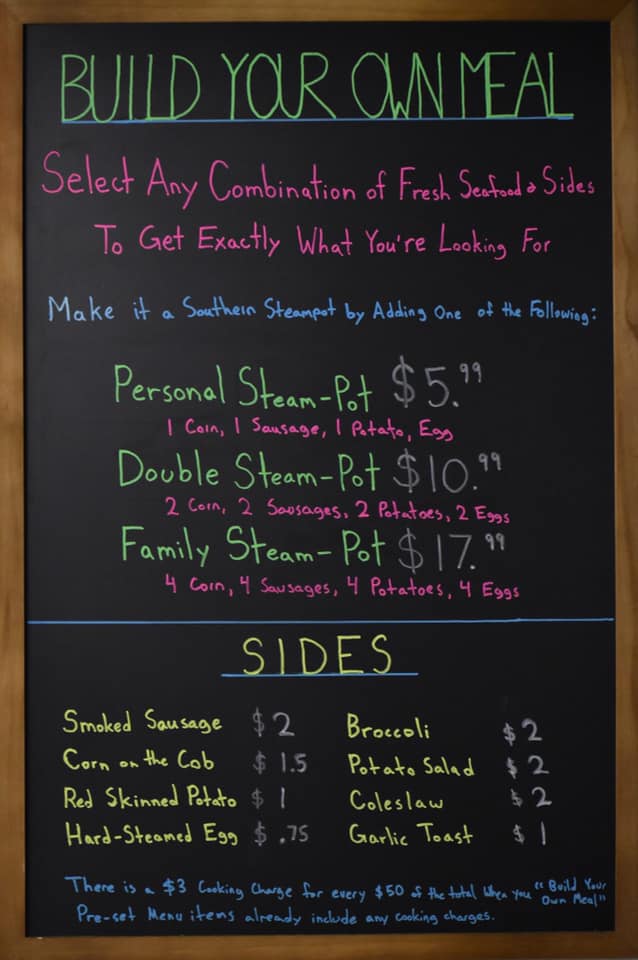 BUILD YOUR OWN MEAL
Select Any Combination of Fresh Seafood & Sides
To Get Exactly What You're Looking For
Make it a Southern Steampot by Adding One of the Following:
Personal Steam-Pot $5.99
1 Corn, 1 Sausage, 1 Potato, Egg
Double Steam-Pot $10.99
2 Corn, 2 Sausages, 2 Potatoes, 2 Eggs
Family Steam-Pot $17.99
4 Corn, 4 Sausages, 4 Potatoes, 4 Eggs
SIDES
Smoked Sausage $2
Corn on the Cob $1.5
Red Skinned Potato $1
Hard-Steamed Egg $.75
Broccoli $2
Potato Salad $2
Coleslaw $2
Garlic Toast $1
There is a $3 Cooking Charge for every $50 of the total when you "Build Your Own Meal"
Pre-set Menu items already include any cooking charges.